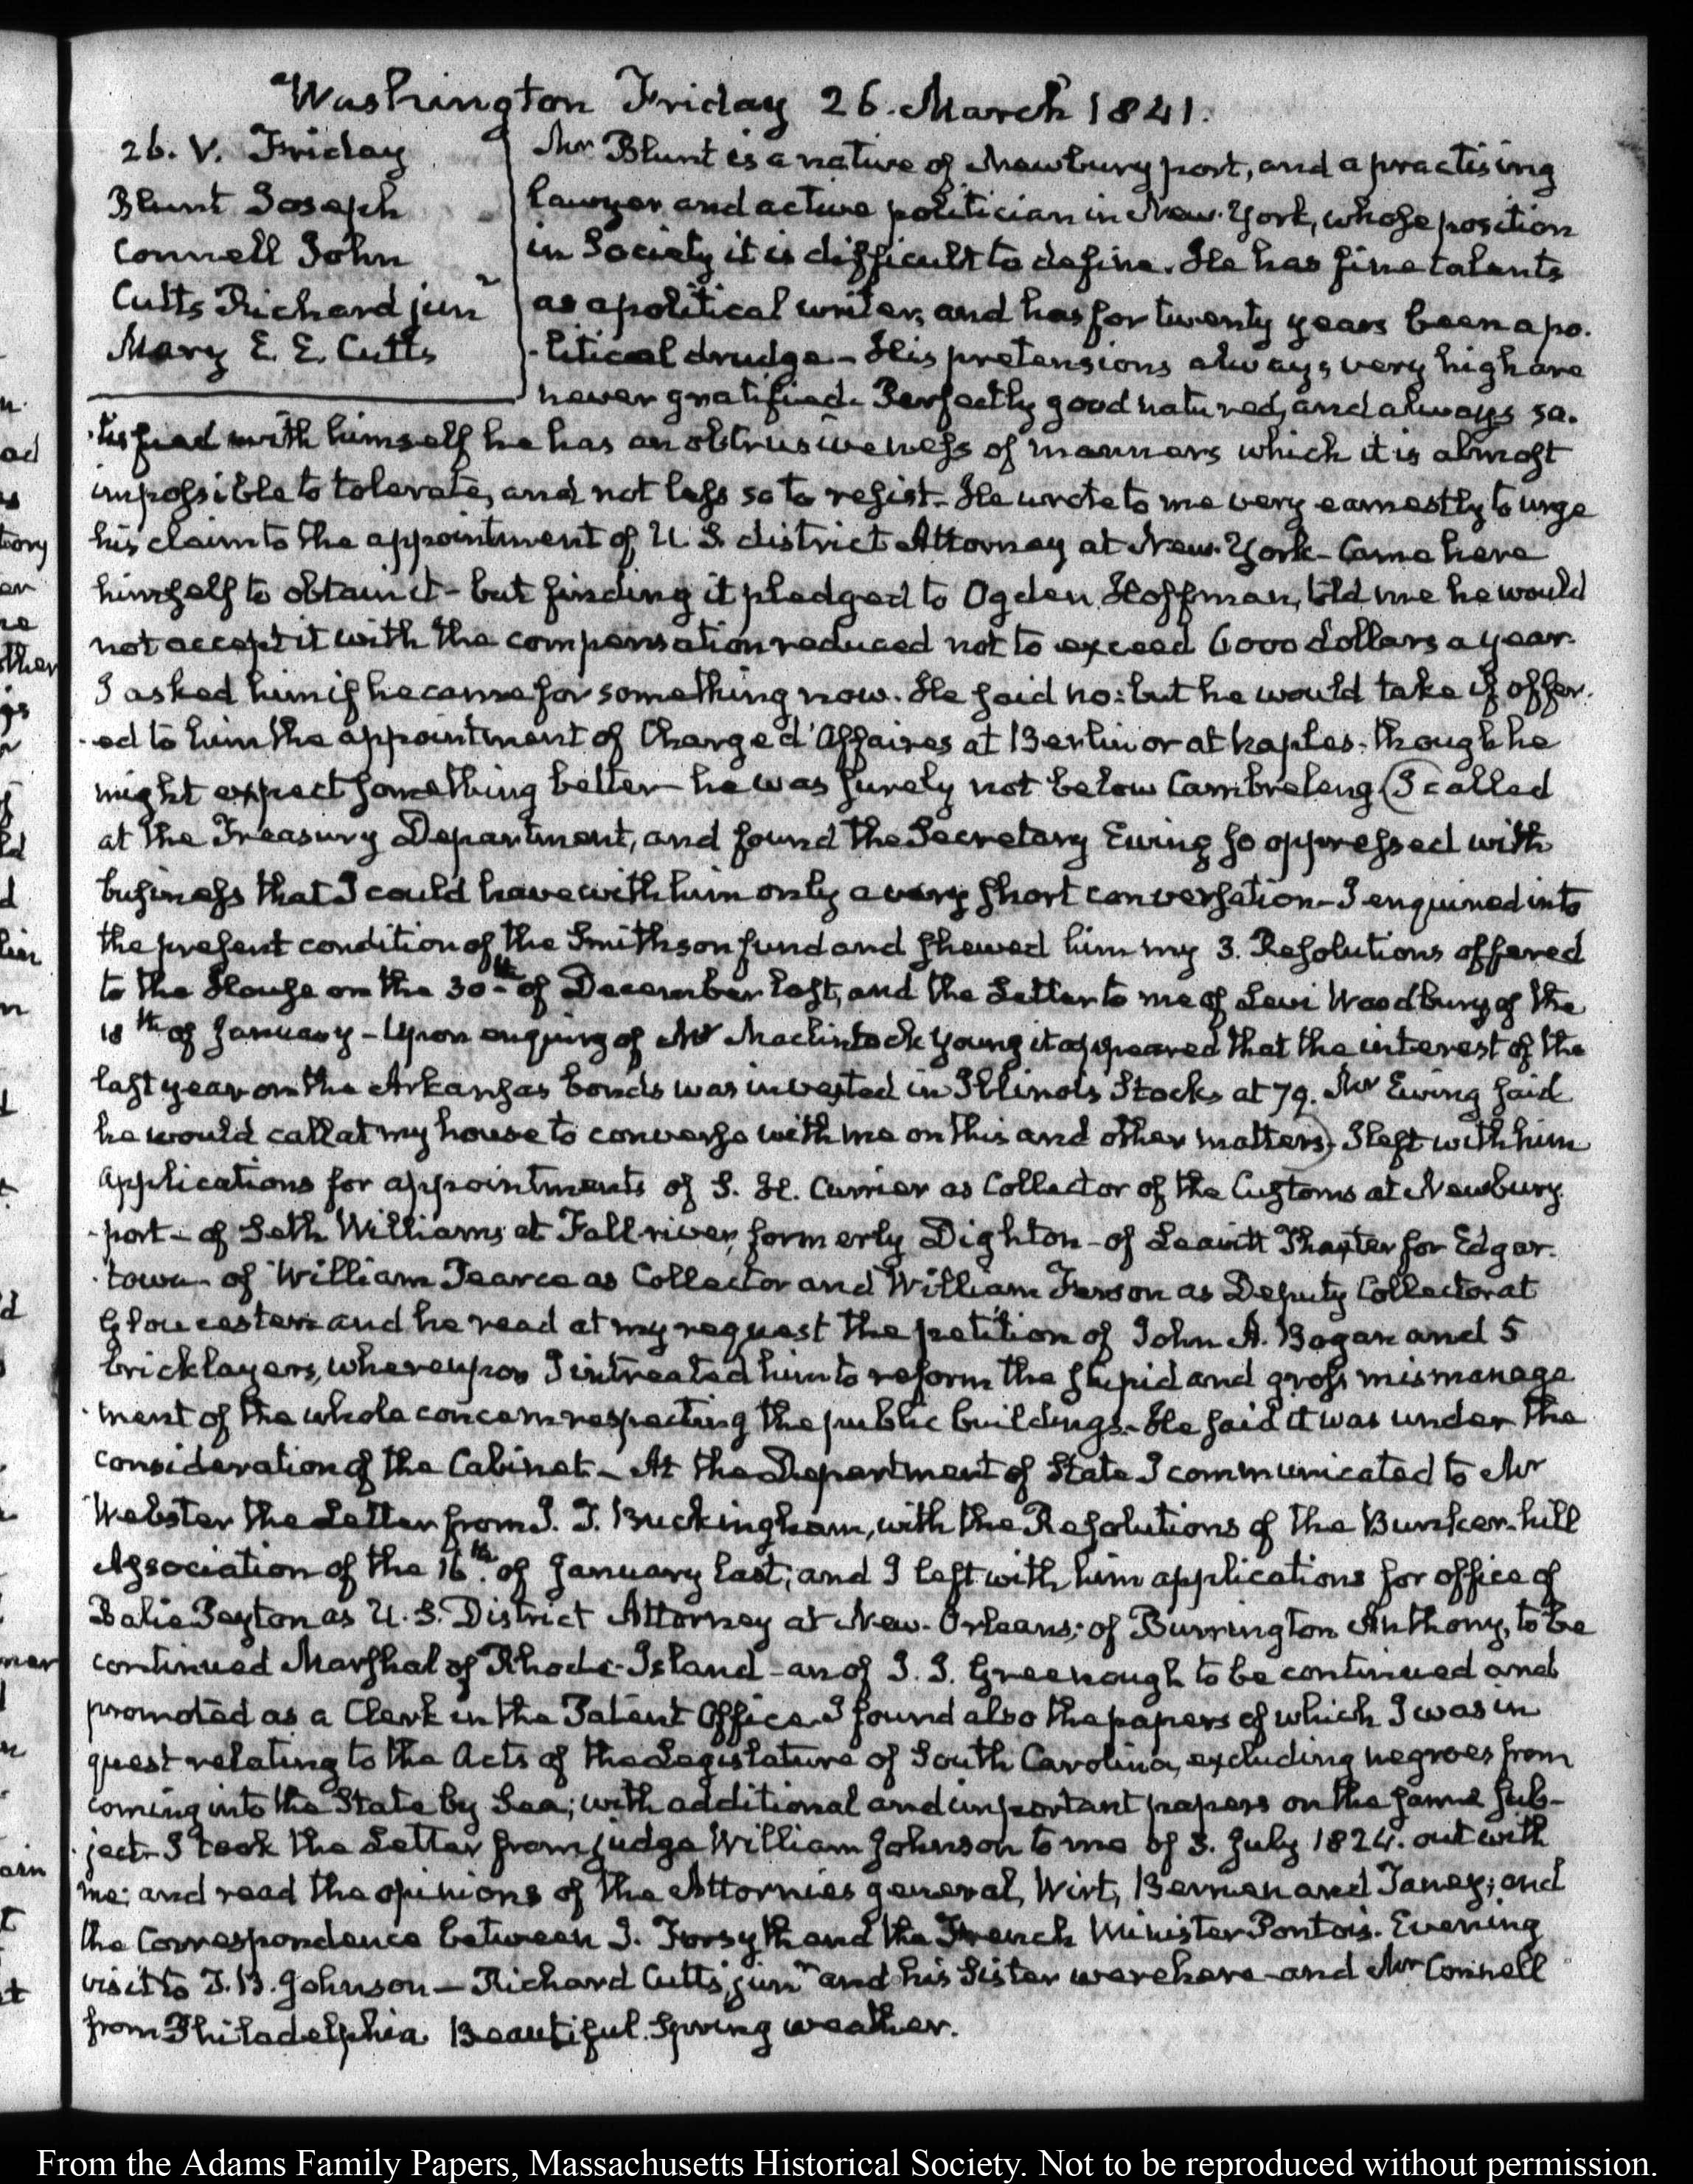 Washington Friday 26. March 1841.
26. V. Friday
Blunt Joseph
Connell John
Cutts Richard junr
Mary E. E. Cutts
Mr Blunt is a native of Newburyport, and a practising
lawyer and active politician in New-York, whose position
in Society it is difficult to define. He has fine talents
as a political writer, and has for twenty years been a po-
-litical drudge - His pretensions always very high are
never gratified. Perfectly good natured, and always sa-
-tisfied with himself he has an obtrusiveness of manners which it is almost
impossible to tolerate, and not less so to resist. He wrote to me very earnestly to urge
his claim to the appointment of U.S. district Attorney at New-York - Came here
himself to obtain it - but finding it pledged to Ogden Hoffman, told me he would
not accept it with the compensation reduced not to exceed 6000 dollars a year.
I asked him if he came for something now. He said no: but he would take if offer-
-ed to him the appointment of Charge d'Affaires at Berlin or at Naples - though he
might expect something better - he was surely not below Cambreleng (I called
at the Treasury Department, and found the Secretary Ewing so oppressed with
business that I could have with him only a very short conversation - I enquired into
the present condition of the Smithson fund and shewed him my 3. Resolutions offered
to the House on the 30th of December last, and the Letter to me of Levi Woodbury of the
18th of January - Upon enquiry of Mr Maclintock Young it appeared that the interest of the
last year on the Arkansas bonds was invested in Illinois Stocks at 79. Mr Ewing said
he would call at my house to converse with me on this and other matters) I left with him
applications for appointments of S. H. Currier as Collector of the Customs at Newbury-
-port - of Seth Williams at Fall river, formerly Dighton - of Leavitt Thaxter for Edgar-
-town - of William Pearce as Collector and William Ferson as Deputy Collector at
Gloucester and he read at my request the petition of John A. Bogan and 5
bricklayers, whereupon I intreated him to reform the stupid and gross mismanage
-ment of the whole concern respecting the public buildings. He said it was under the
consideration of the Cabinet - At the Department of State I communicated to Mr
Webster the Letter from J. T. Buckingham, with the Resolutions of the Bunker-hill
Association of the 16th of January last; and I left with him applications for office of
Balie Peyton as U.S. District Attorney at New-Orleans; of Burrington Anthony, to be
continued Marshal of Rhode-Island - an of J. J. Greenough to be continued and
promoted as a Clerk in the Patent Office. I found also the papers of which I was in
quest relating to the Acts of the Legislature of South Carolina, excluding negroes from
coming into the State by Sea; with additional and important papers on the same sub-
-ject - I took the Letter from judge William Johnson to me of 3. July 1824. out with
me; and read the opinions of the Attornies general, Wirt, Berrien and Taney; and
the Correspondence between J. Forsyth and the French Minister Pontois. Evening
visit to J. B. Johnson - Richard Cutts, junr and his Sister were here - and Mr Connell
from Philadelphia. Beautiful Spring weather.
From the Adams Family Papers, Massachusetts Historical Society. Not to be reproduced without permission.